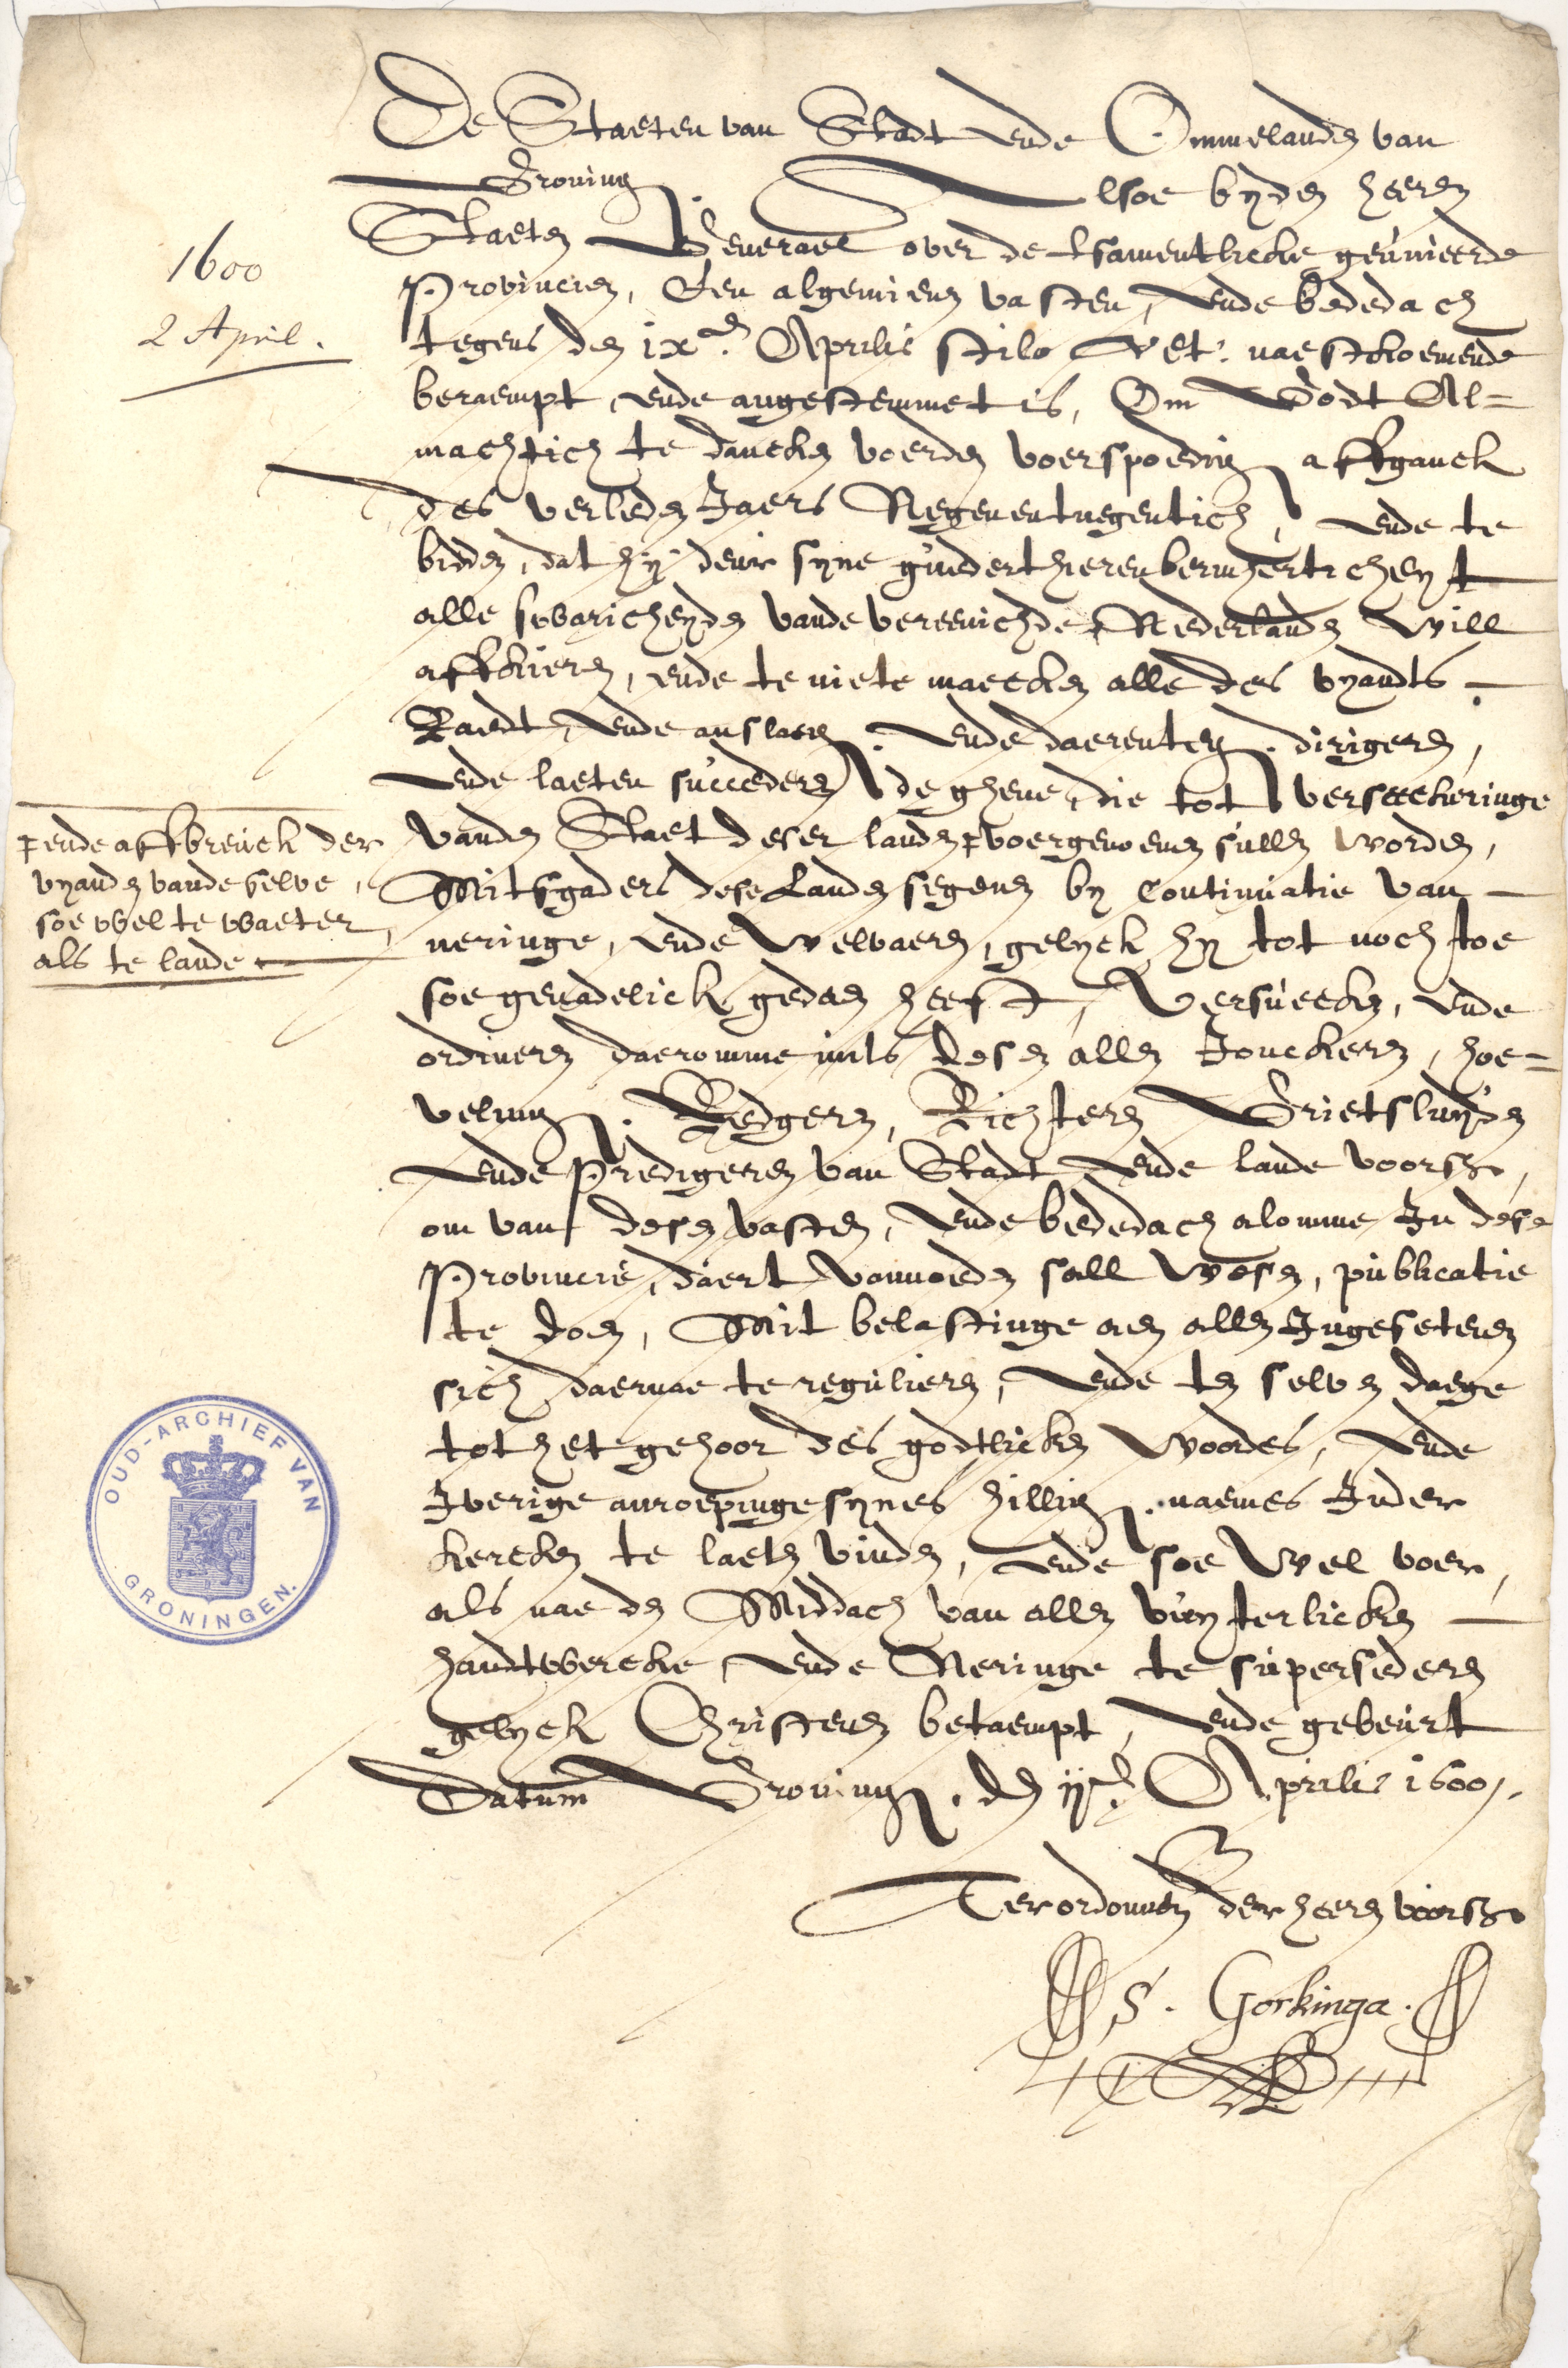 De Staeten van Stadt ende Ommelanden van
Groning. Alsoe byden heeren
Staeten Generael over de tsamentlicke geunieerde
Provincien, Een algemienen vasten, ende bededach
tegens den ixen. Aprilis stilo Vet. naestkoemende
beraempt, ende angestemmet is, Om Godt Al=
machtich te dancken voerden voerspoedig affganck
des verleden Jaers Negenentnegentich, ende te
bidden, dat hy deur syne guederthierenbermhertichheyt
alle swaricheyden vande vereenichde Nederlanden will
affkieren, ende te niete maecken alle des vyandts
Raedt, ende anslaeg. ende daerenteg. dirigeren,
ende laeten succederen de ghene, die tot verseeckeringe
vanden Staet deser landen voergenoemen sullen worden,
Mitsgaders dese Landen segenen by Continuatie van
neringe, ende welvaeren, gelyck hy tot noch toe
soe genadelick gedaen heeft, Versuecken, ende
ordineren daeromme mits desen allen Jonckeren, hoe=
veling. Redgeren, Richteren Grietsluyden
ende Predigeren van Stadt ende lande voors.,
om van desen vasten, ende bededach alomme In dese
Provincie, daert vannoeden sall wesen, publicatie
te doen, Mit belastinge aen allen Ingesetenen
sich daernae te regulieren, ende ten selven daege
tot het gehoor des godtlicken woordes, ende
Iverige anroepinge synes hillig. naemes Inder
kercken te laeten vinden, ende soe wel voer,
als nae den Middach van allen vuyterlicken
handtwercke, ende Neringe te supersederen
gelyck Christenen betaempt, ende gebeurt
Datum Groning. den ijen. Aprilis 1600.
Ter ordonnen der heeren voors.
S. Gorkinga.
1600
2 April.
ende affbreuck der
vyanden vande selve,
soe wel te waeter,
als te lande
OUD-ARCHIEF VAN
GRONINGEN.